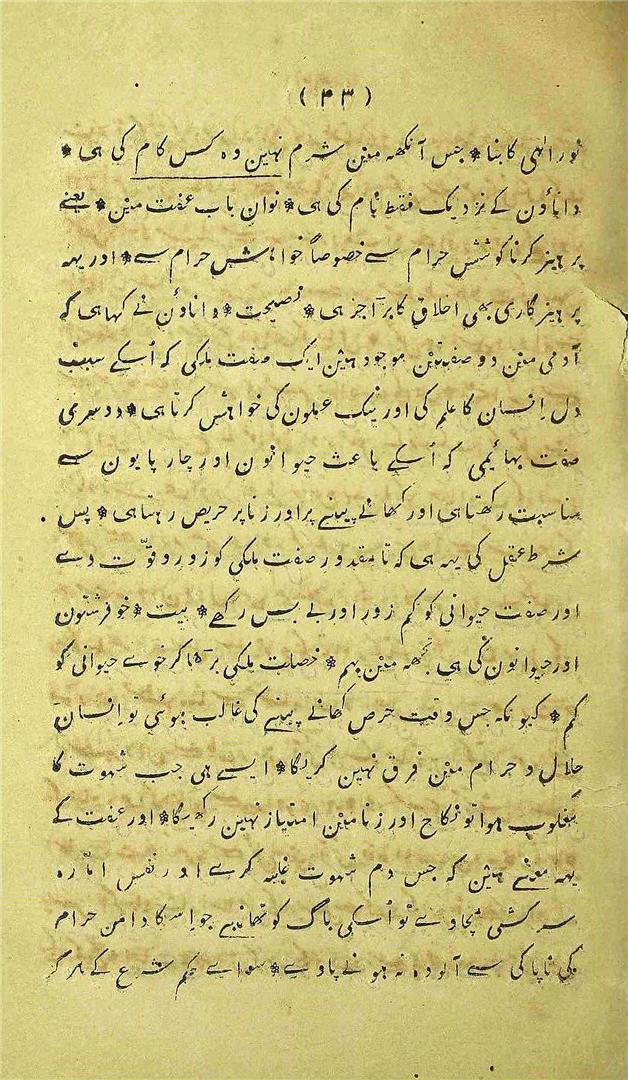 ( ۴۳ )
نور الٰہی کا بنا * جس آنکھہ مین شرم نہین وہ کس کام کی ہی *
داناؤن کے نزدیک فقط نام کی ہی * نوان باب عفت مین * یعنے
پرہیز کرنا کوشش حرام سے خصوصاً خواہش حرام سے * اور یہہ
پرہیزگاری بھی اخلاق کا بڑا جز ہی * نصیحت * داناؤن نے کہا ہی کہ
آدمی مین دو صفتین موجود ہین ایک صفت ملکی کہ اُسکے سبب
دل اِنسان کا علم کی اور نیک عملون کی خواہش کرتا ہی * دوسری
صفت بہائیمی کہ اُسکے باعث حیوانون اور چارپایون سے
مناسبت رکھتا ہی اور کھانے پینے پر اور زنا پر حریص رہتا ہی * پس
شرط عقل کی یہہ ہی کہ تا مقدور صفت ملکی کو زور و قوّت دے
اور صفت حیوانی کو کم زور اور بے بس رکھے * بیت * خو فرشتون
اور حیوانون کی ہی تجھہ مین بہم * خصلت ملکی بڑھا کر خوے حیوانی کو
کم * کیونکہ جس وقت حرص کھانے پینے کی غالب ہوئی تو اِنسان
حلال و حرام مین فرق نہین کریگا * ایسے ہی جب شہوت کا
مغلوب ہوا تو نکاح اور زنا مین امتیاز نہین رکھیگا * اور عفت کے
یہہ معنے ہین کہ جس دم شہوت غلبہ کرے اور نفس امّارہ
سرکشی مچاوے تو اُسکی باگ کو تھانبے جو اِسکا دامن حرام
کی ناپاکی سے آلودہ نہ ہونے پاوے * سواے حکم شرع کے ہرگز